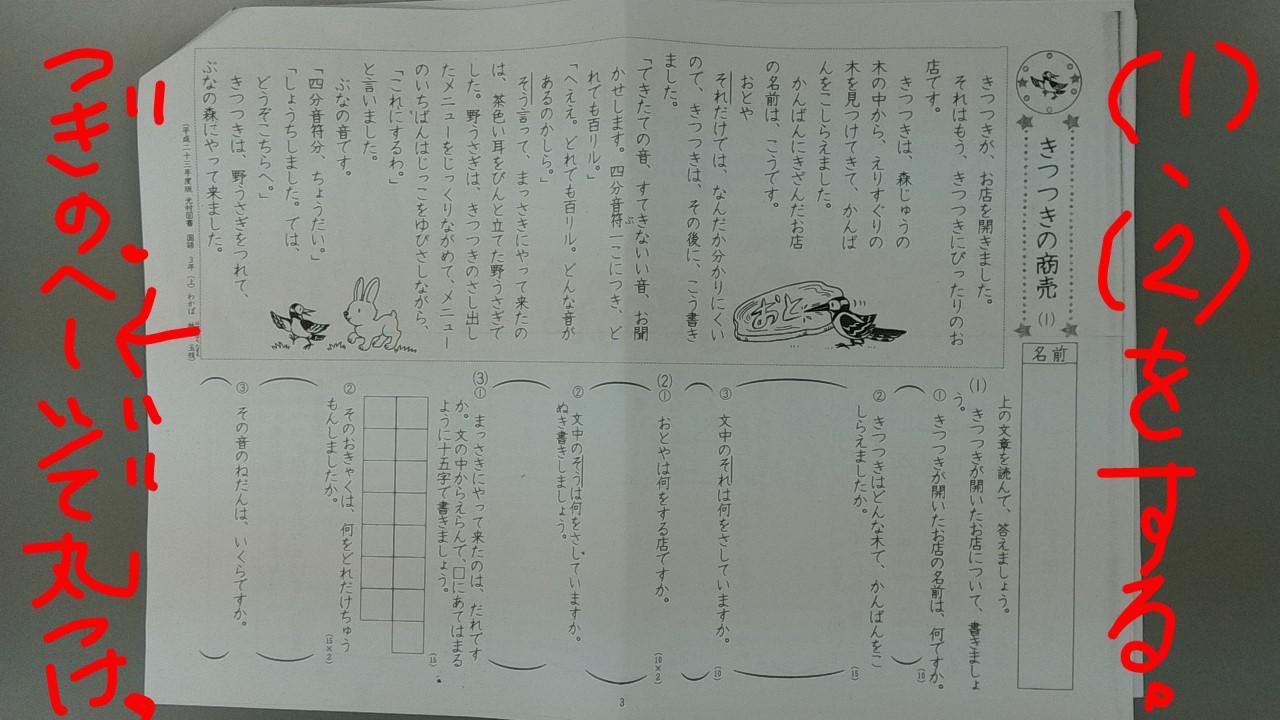 (1)、(2)をする。
きつつきの商売
(1)
名前
きつつきが、お店を開きました。
それはもう、きつつきにぴったりのお
店です。
きつつきは、森じゅうの
木の中から、えりすぐりの
木を見つけてきて、かんば
んをこしらえました。
かんばんにきざんだお店
の名前は、こうです。
おとや
それだけでは、なんだか分かりにくい
ので、きつつきは、その後に、こう書き
ました。
「できたての音、すてきないい音、お聞
かせします。四分音符一こにつき、ど
ぷ
れでも百リル。」
「へええ。どれでも百リル。どんな音が
あるのかしら。」
そう言って、まっさきにやって来たの
は、茶色い耳をぴんと立てた野うさぎで
した。野うさぎは、きつつきのさし出し
たメニューをじっくりながめて、メニュー
のいちばんはじっこをゆびさしながら、
「これにするわ。」
と言いました。
ぶなの音です。
「四分音符分、ちょうだい。」
「しょうちしました。では、
どうぞこちらへ。」
きつつきは、野うさぎをつれて、
ぶなの森にやって来ました。
(平成二十三年度版 光村図書 国語 3年(上) わかば
おとや
上の文章を読んで、答えましょう。
(1) きつつきが開いたお店について、書きましょ
う。
① きつつきが開いたお店の名前は、何ですか。
(10)
② きつつきはどんな木で、かんばんをこ
しらえましたか。
(15)
③ 文中のそれは何をさしていますか。
(10)
(2)① おとやは何をする店ですか。
(10×2)
② 文中のそうは何をさしていますか。
ぬき書きしましょう。
(3)① まっさきにやって来たのは、だれです
か。文の中からえらんで、□にあてはまる
ように十五字で書きましょう。
(15)
② そのおきゃくは、何をどれだけちゅう
もんしましたか。
(15×2)
③ その音のねだんは、いくらですか。
3